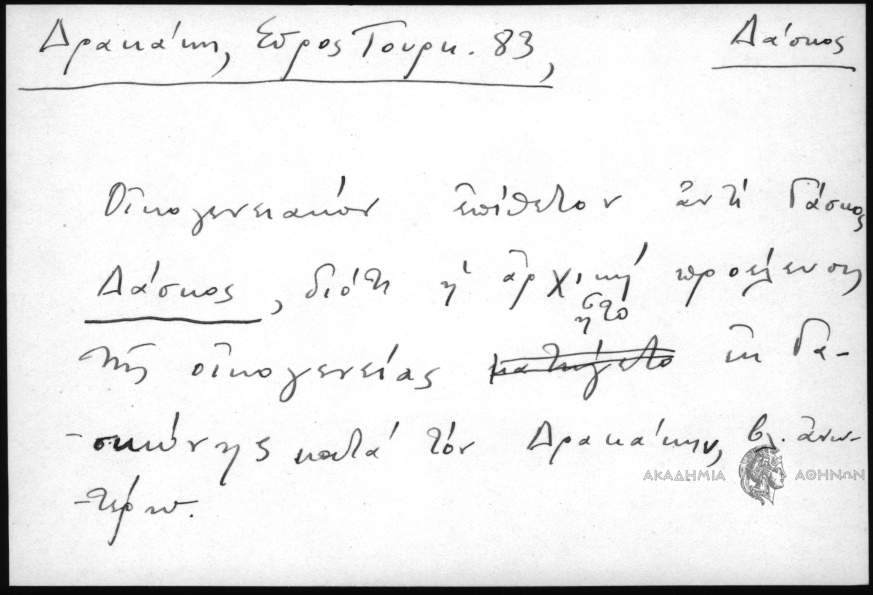 Δρακάκη, Σῦρος Τουρκ. 83,
Δάσκος
Οἰκογενειακόν ἐπίθετον ἀντί Γάσκος
Δάσκος, διότι ἡ ἀρχική προέλευση
ἦτο
τῆς οἰκογενείας κατήγετο ἐκ Γα-
-σκώνης κατά τόν Δρακάκην, βλ. ἀνω-
-τέρω.
ΑΚΑΔΗΜΙΑ ΑΘΗΝΩΝ